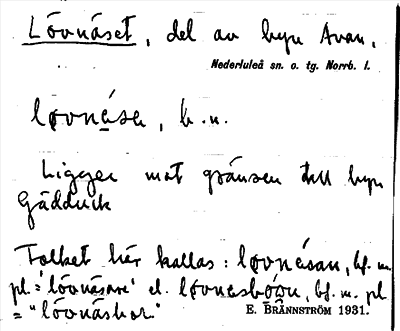 Lövnäset, del av byn Avan,
Nederluleå sn. o. tg. Norrb. l.
løvnäsa, b.n.
Ligger mot gränsen till byn
Gäddvik
Folket här kallas: løvnäsan, bf. m.
pl = 'lövnäsare' el. løvnasbów, bf. m. pl
= "lövnäsbor"
E. BRÄNNSTRÖM 1931.